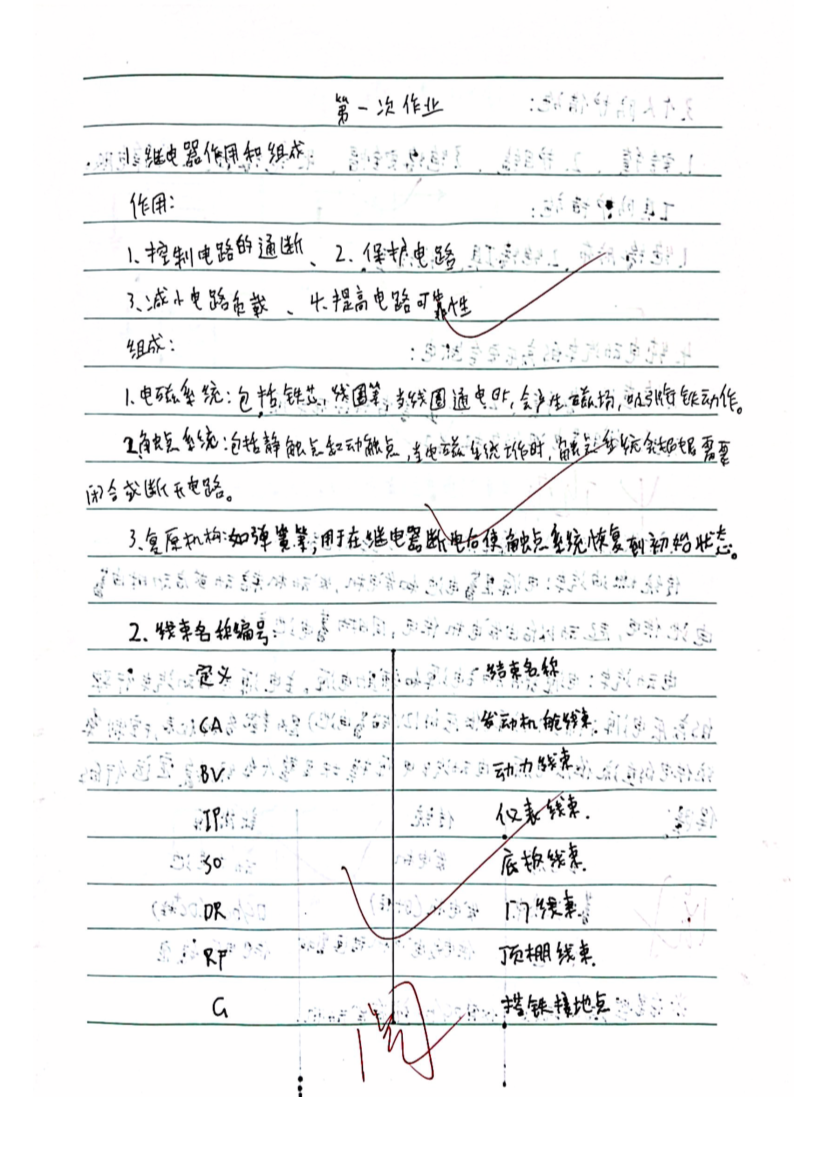 第一次作业
1.继电器作用和组成
作用:
1.控制电路的通断、2.保护电路
3.减小电路负载、4.提高电路可靠性
组成:
1.电磁系统:包括铁芯,线圈等,当线圈通电时,会产生磁场,吸引衔铁动作。
2.触点系统:包括静触点和动触点,当电磁系统工作时,触点系统会根据需要
闭合或断开电路。
3.复原机构:如弹簧等,用于在继电器断电后使触点系统恢复到初始状态。
2.线束名称编号:
定义 线束名称
CA 发动机舱线束
BV 动力线束
IP 仪表线束.
SO 底板线束.
DR 门线束
RF 顶棚线束.
G 搭铁接地点